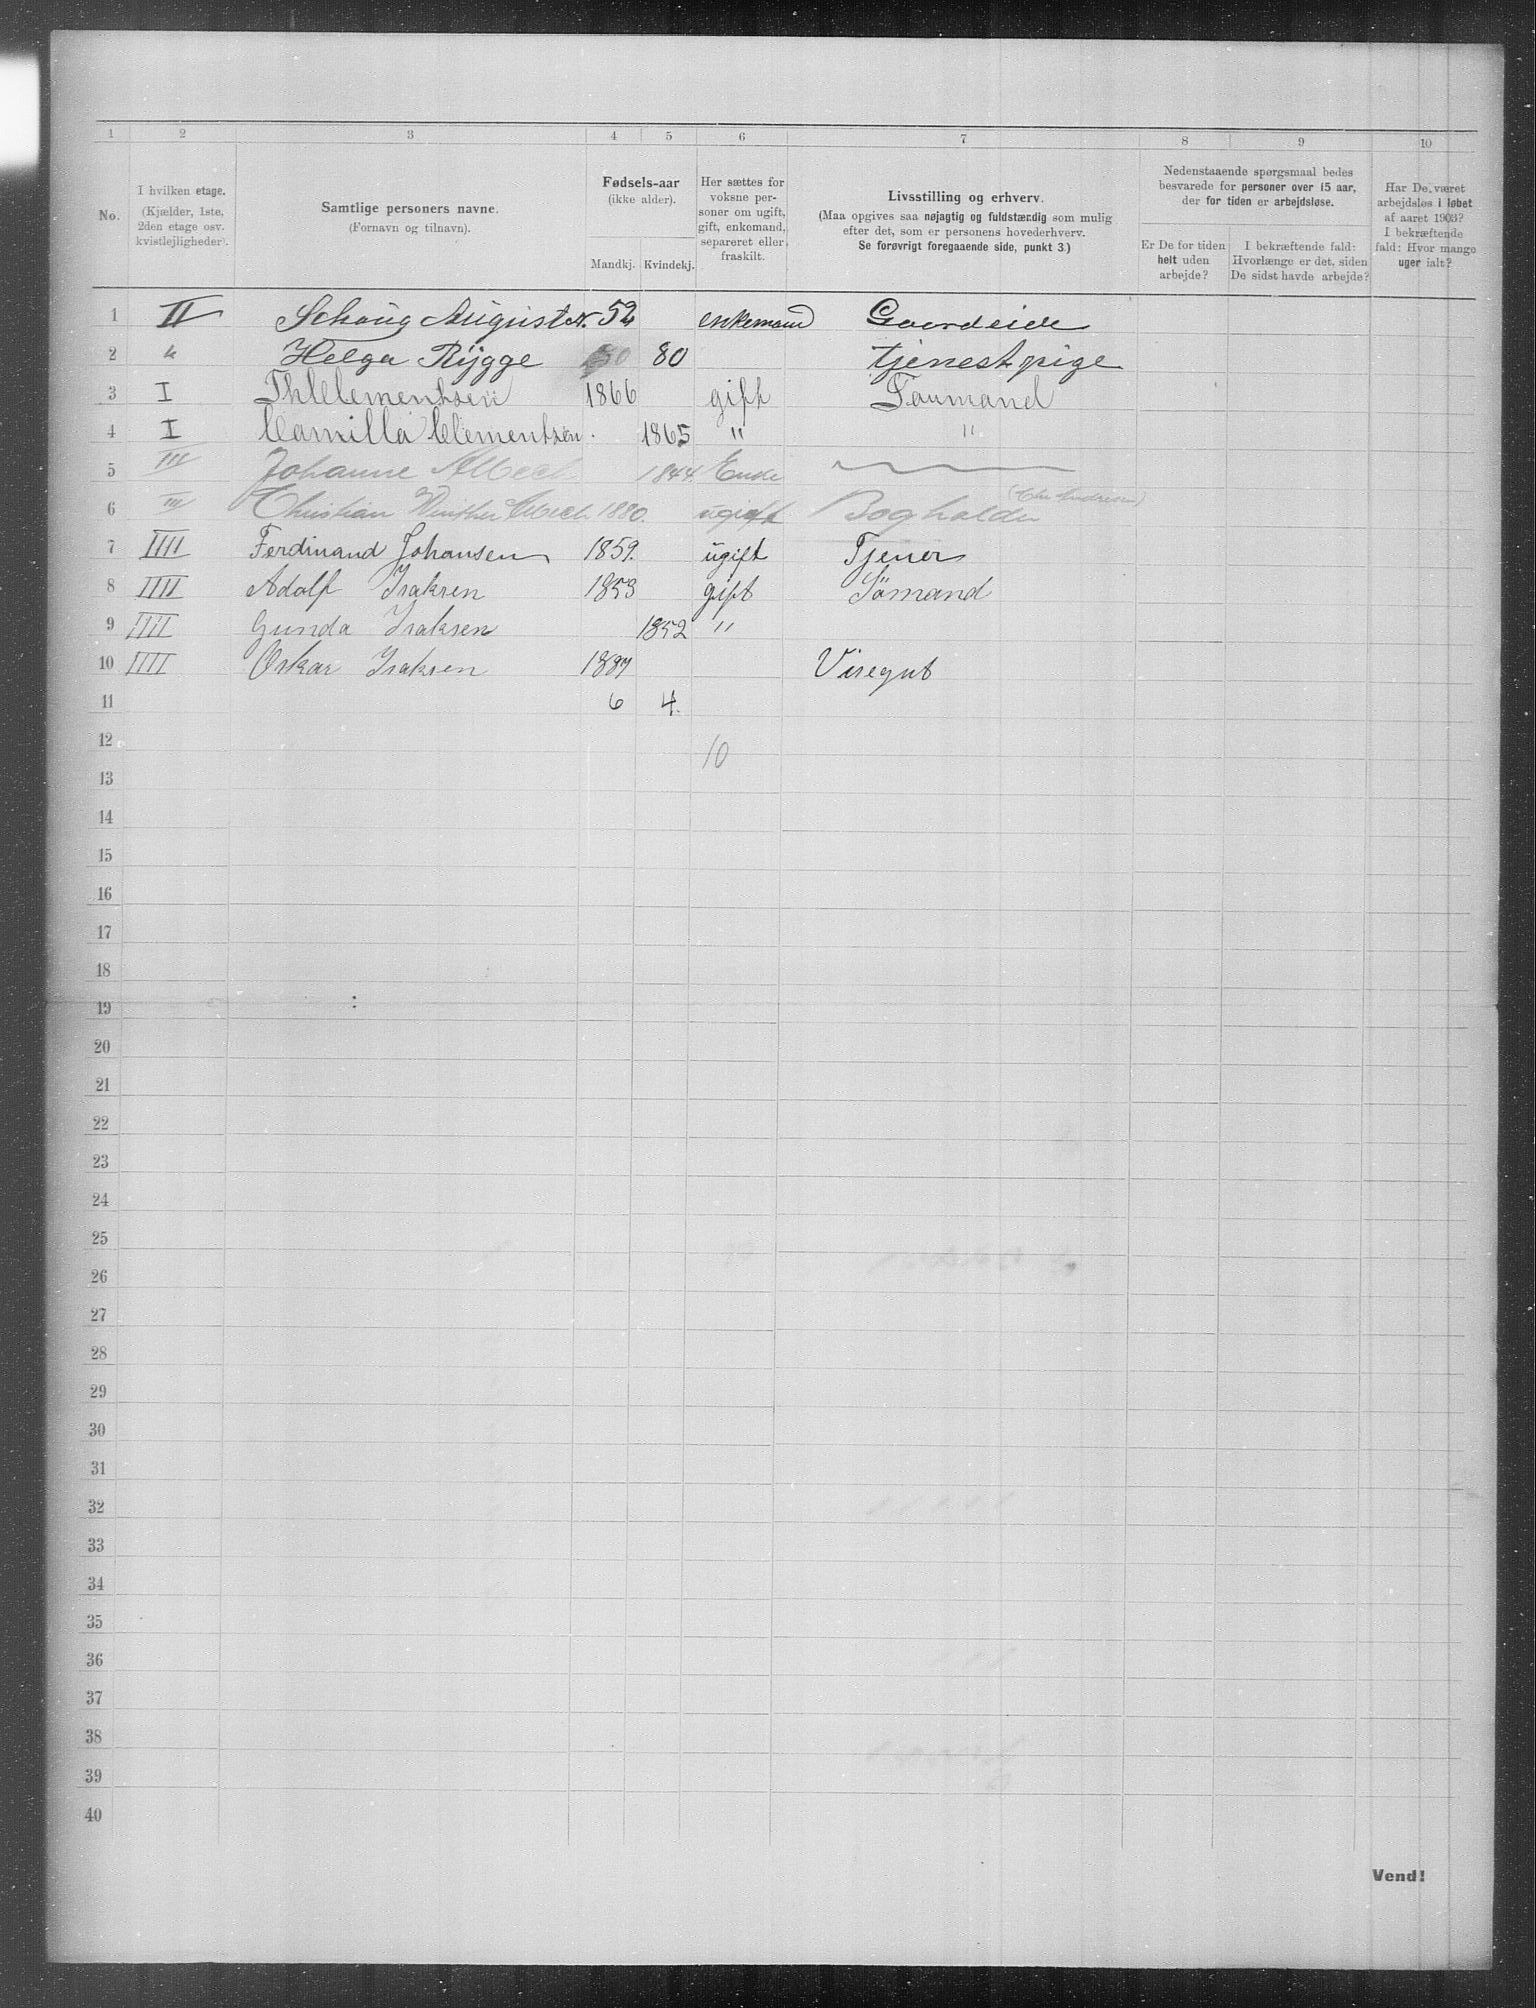 1 2 3 4 5 6 7 8 9 10
No.
I hvilken etage.
(Kjælder, 1ste,
2den etage osv.
kvistlejligheder).
Samtlige personers navne.
(Fornavn og tilnavn).
Fødsels-aar
(ikke alder).
Mandkj. Kvindekj.
Her sættes for
voksne per-
soner om ugift,
gift, enkemand,
separeret eller
fraskilt.
Livsstilling og erhverv.
(Maa opgives saa nøjagtig og fuldstændig som mulig
efter det, som er personens hovederhverv.
Se forøvrigt foregaaende side, punkt 3.)
Nedenstaaende spørgsmaal bedes
besvarede for personer over 15 aar,
der for tiden er arbejdsløse.
Er De for tiden
helt uden
arbejde?
I bekræftende fald:
Hvorlænge er det, siden
De sidst havde arbejde?
Har De været
arbejdsløs i løbet
af aaret 1903?
I bekræftende
fald: Hvor mange
uger ialt?
1 II Schoug August N. 52 enkemand Gaardeide
2 " Helga Rygge 80 tjenestpige
3 I Th Clementsen 1866 gift Formand
4 I Camilla Clementsen. 1865 " "
5 III Johanne 1844. Enke
6 III Christian Winther 1880. ugift Bogholder
7 IIII Ferdinand Johansen 1859. ugift Tjener
8 IIII Adolf Isaksen 1853 gift Sømand
9 IIII Gunda Isaksen 1852 "
10 IIII Oskar Isaksen 1887 Visegut
11 6 4.
12 10
13
14
15
16
17
18
19
20
21
22
23
24
25
26
27
28
29
30
31
32
33
34
35
36
37
38
39
40
Vend!